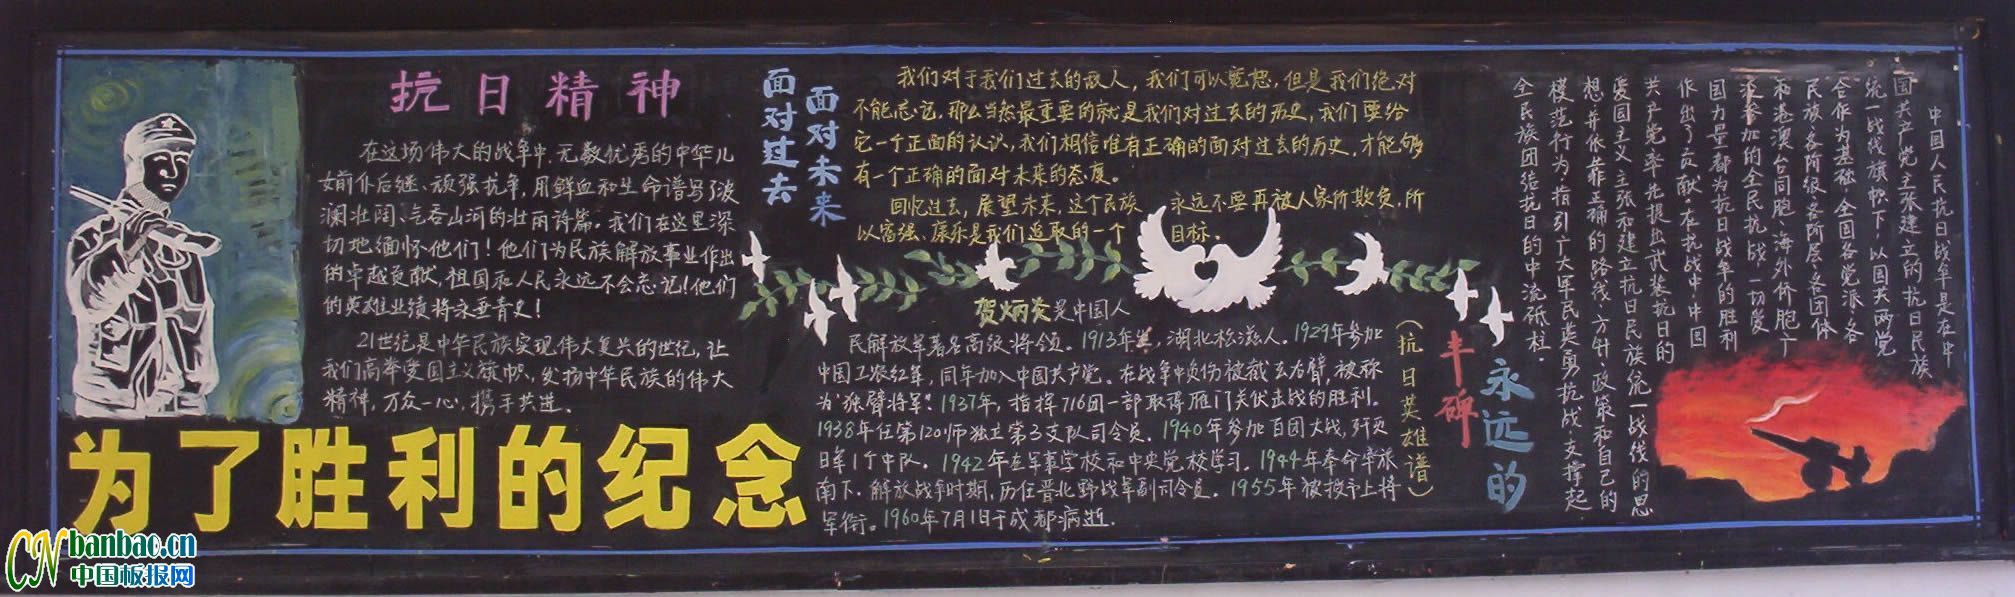 抗日精神
在这场伟大的战争中,无数优秀的中华儿
女前仆后继、顽强抗争,用鲜血和生命谱写了波
澜壮阔、气吞山河的壮丽诗篇。我们在这里深
切地缅怀他们!他们为民族解放事业作出
的卓越贡献,祖国和人民永远不会忘记!他们
的英雄业绩将永垂青史!
21世纪是中华民族实现伟大复兴的世纪,让
我们高举爱国主义旗帜,发扬中华民族的伟大
精神,万众一心,携手共进。
为了胜利的纪念
面对过去
面对未来
我们对于我们过去的敌人,我们可以宽恕,但是我们绝对
不能忘记,那么当然最重要的就是我们对过去的历史,我们要给
它一个正面的认识,我们相信唯有正确的面对过去的历史,才能够
有一个正确的面对未来的态度。
回忆过去,展望未来,这个民族 永远不要再被人家所欺负,所
以富强、康乐是我们追取的一个 目标。
贺炳炎是中国人
民解放军著名高级将领。1913年生,湖北松滋人。1929年参加
中国工农红军,同年加入中国共产党。在战争中负伤被截去右臂,被称
为“独臂将军”。1937年,指挥716团一部取得雁门关伏击战的胜利。
1938年任第120师独立第3支队司令员。1940年参加百团大战,歼灭
日军1个中队。1942年在军事学校和中央党校学习。1944年奉命率旅
南下。解放战争时期,历任晋北野战军副司令员。1955年被授予上将
军衔。1960年7月1日于成都病逝.
(抗日英雄谱)
永远的
丰碑
中国人民抗日战争是在中
国共产党主张建立的抗日民族
统一战线旗帜下,以国共两党
合作为基础,全国各党派、各
民族、各阶级、各阶层、各团体
和港澳台同胞、海外侨胞广
泛参加的全民抗战,一切爱
国力量都为抗日战争的胜利
作出了贡献。在抗战中,中国
共产党率先提出武装抗日的
爱国主义主张和建立抗日民族统一战线的思
想,并依靠正确的路线、方针、政策和自己的
模范行为,指引广大军民英勇抗战,支撑起
全民族团结抗日的中流砥柱.
CN banbao.cn
中国板报网